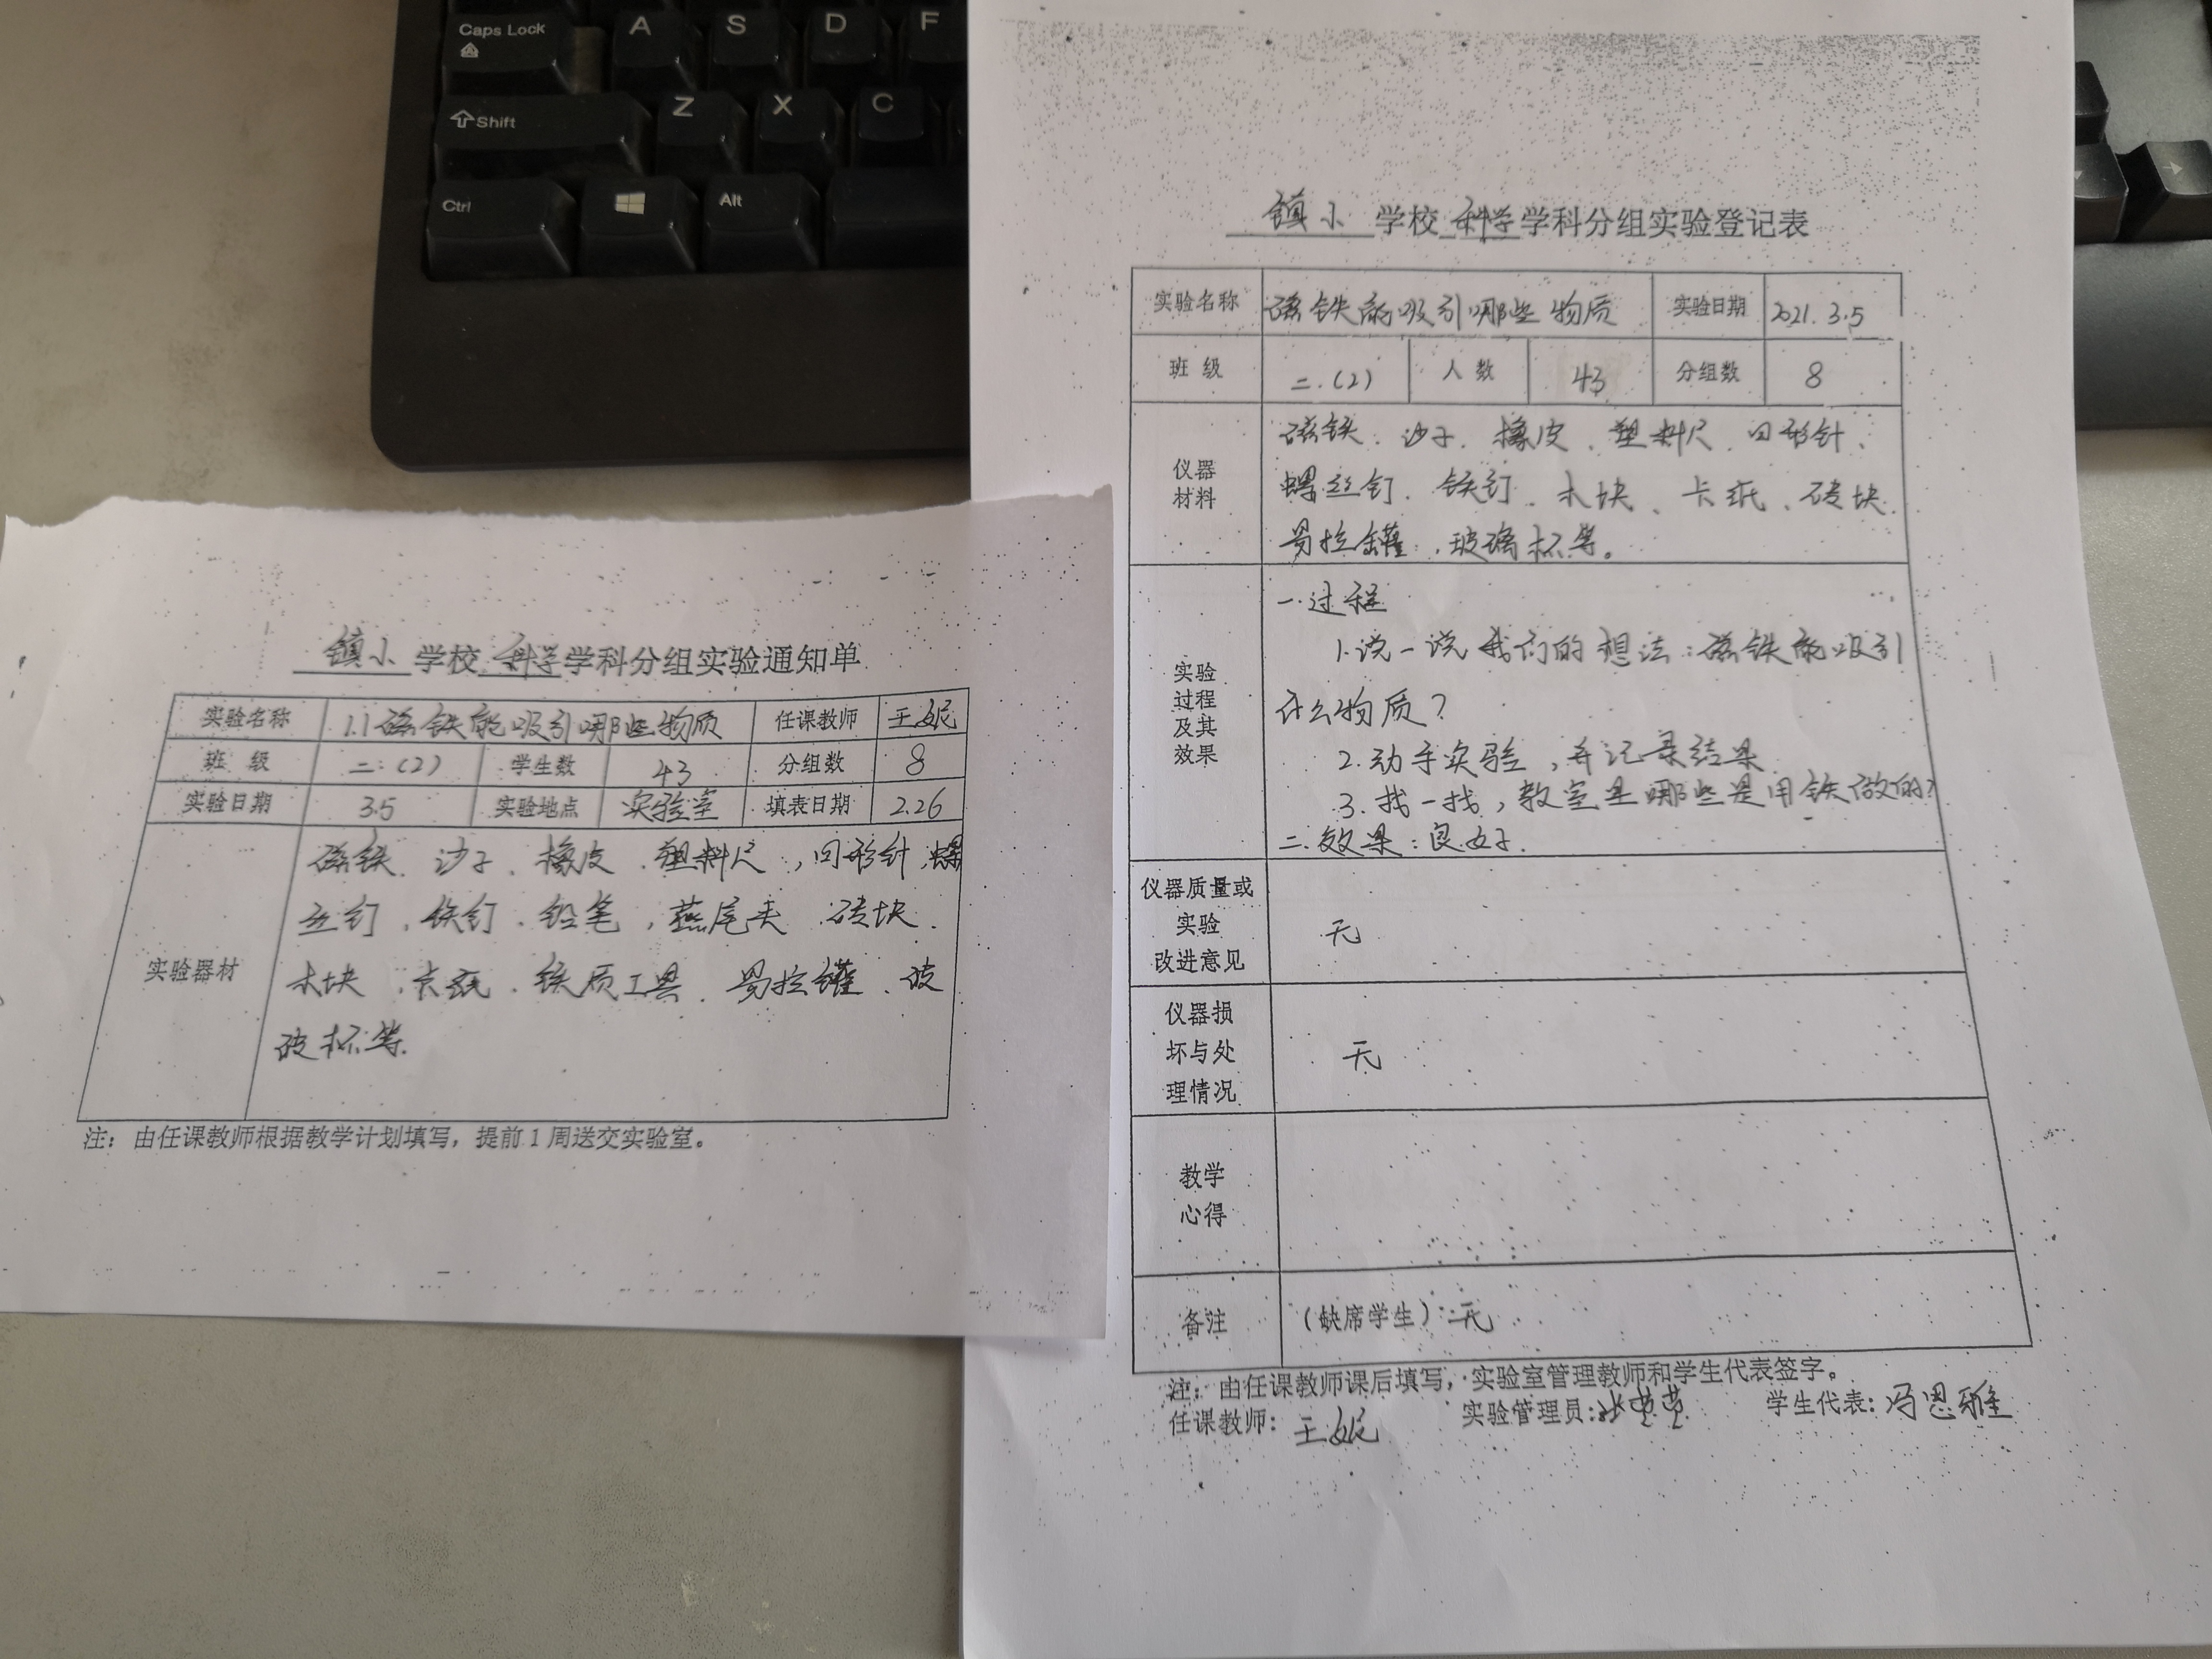 Caps Lock A S D F
Shift Z X C
Ctrl Alt
镇小 学校 科学 学科分组实验通知单
实验名称 1.1磁铁能吸引哪些物质 任课教师 王妮
班 级 二.(2) 学生数 43 分组数 8
实验日期 3.5 实验地点 实验室 填表日期 2.26
实验器材
磁铁、沙子、橡皮、塑料尺，回形针，螺
丝钉、铁钉、铅笔，燕尾夹、砖块、
木块、卡纸、铁质工具、易拉罐、玻
玻杯等.
注：由任课教师根据教学计划填写，提前1周送交实验室。
镇小 学校 科学 学科分组实验登记表
实验名称 磁铁能吸引哪些物质 实验日期 2021.3.5
班 级 二.(2) 人 数 43 分组数 8
仪器
材料
磁铁、沙子、橡皮、塑料尺、回形针、
螺丝钉、铁钉、木块、卡纸、砖块
易拉罐、玻璃杯等。
实验
过程
及其
效果
一.过程
1.说一说我们的想法：磁铁能吸引
什么物质？
2.动手实验，并记录结果
3.找一找，教室里哪些是用铁做的？
二.效果：良好.
仪器质量或
实验
改进意见
无
仪器损
坏与处
理情况
无
教学
心得
备注 （缺席学生）：无
注：由任课教师课后填写，实验室管理教师和学生代表签字。
任课教师：王妮 实验管理员：张莹莹 学生代表：冯恩雅